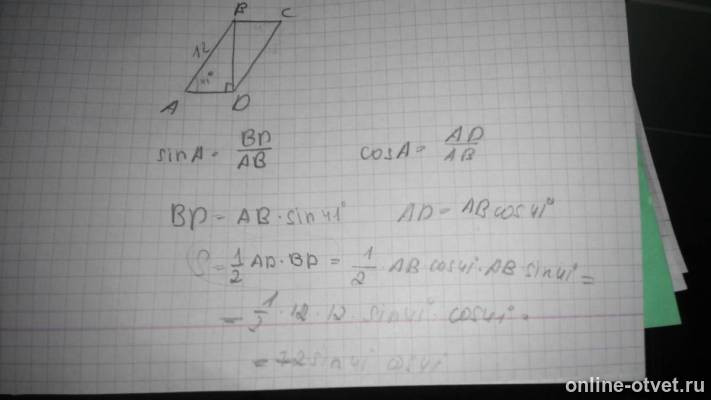 B C
12
41°
A D
sin A = BD/AB cos A = AD/AB
BD = AB · sin 41° AD = AB cos 41°
S = 1/2 AD · BD = 1/2 · AB cos 41° · AB sin 41° =
= 1/2 · 12 · 12 sin 41° cos 41° =
= 72 sin 41° cos 41°
online-otvet.ru